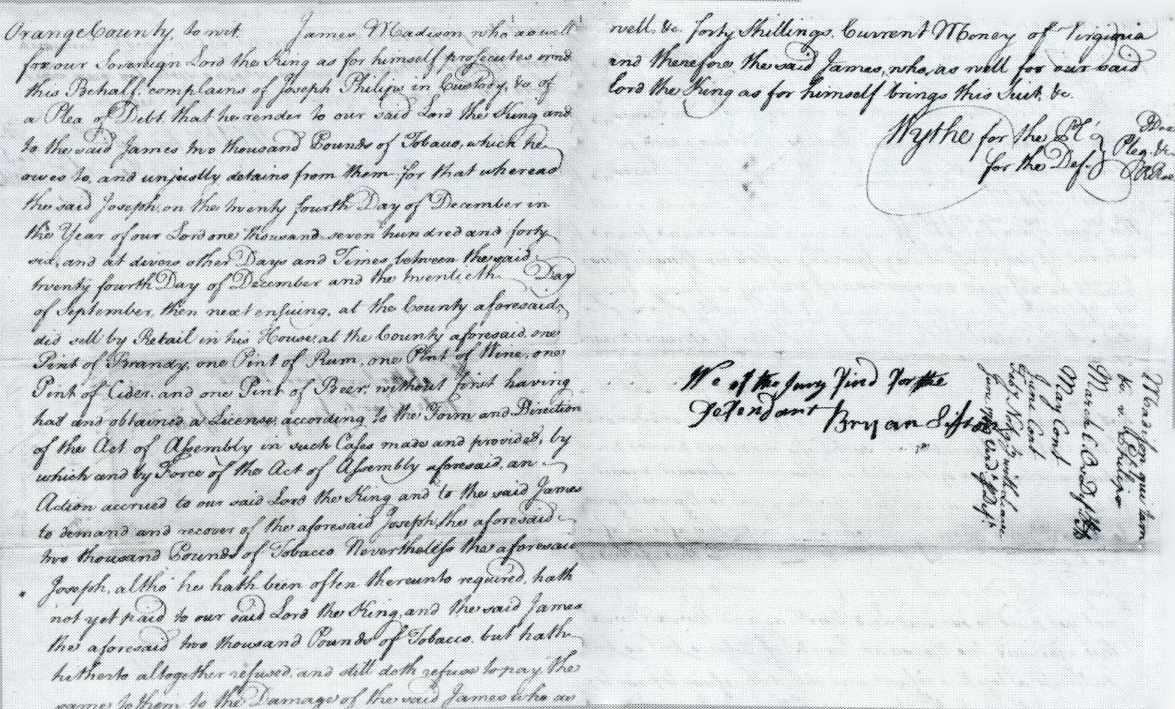 Orange County, to wit James Madison who as well
for our Sovereign Lord the King as for himself prosecutes in
this Behalf, complains of Joseph Philips in Custody, &c. of
a Plea of Debt that he render to our said Lord the King and
to the said James two thousand Pounds of Tobacco, which he
owes to, and unjustly detains from them for that whereas
the said Joseph, on the twenty fourth Day of December in
the Year of our Lord one thousand seven hundred and forty
six, and at divers other Days and Times, between the said
twenty fourth Day of December and the twentieth Day
of September, then next ensuing, at the County aforesaid,
did sell by Retail in his House, at the County aforesaid, one
Pint of Brandy, one Pint of Rum, one Pint of Wine, one
Pint of Cider, and one Pint of Beer, without first having
had and obtained a License, according to the Form and Direction
of the Act of Assembly in such Cases made and provided, by
which and by Force of the Act of Assembly aforesaid, an
Action accrued to our said Lord the King and to the said James
to demand and recover of the aforesaid Joseph, the aforesaid
two thousand Pounds of Tobacco Nevertheless the aforesaid
Joseph, altho' he hath been often thereunto required, hath
not yet paid to our said Lord the King, and the said James
the aforesaid two thousand Pounds of Tobacco, but hath
hetherto altogether refused, and still doth refuse to pay the
same to them to the Damage of the said James who as
well, &c. forty Shillings, Current Money of Virginia
and therefore the said James, who, as well for our said
Lord the King as for himself brings this Suit, &c.
Wythe for the Pl.
for the Def.
Pleg. &c.
We of the Jury Find For the
Defendant Bryan Sisson
Madison qui tam
v. Philips
May Cont
June Cont